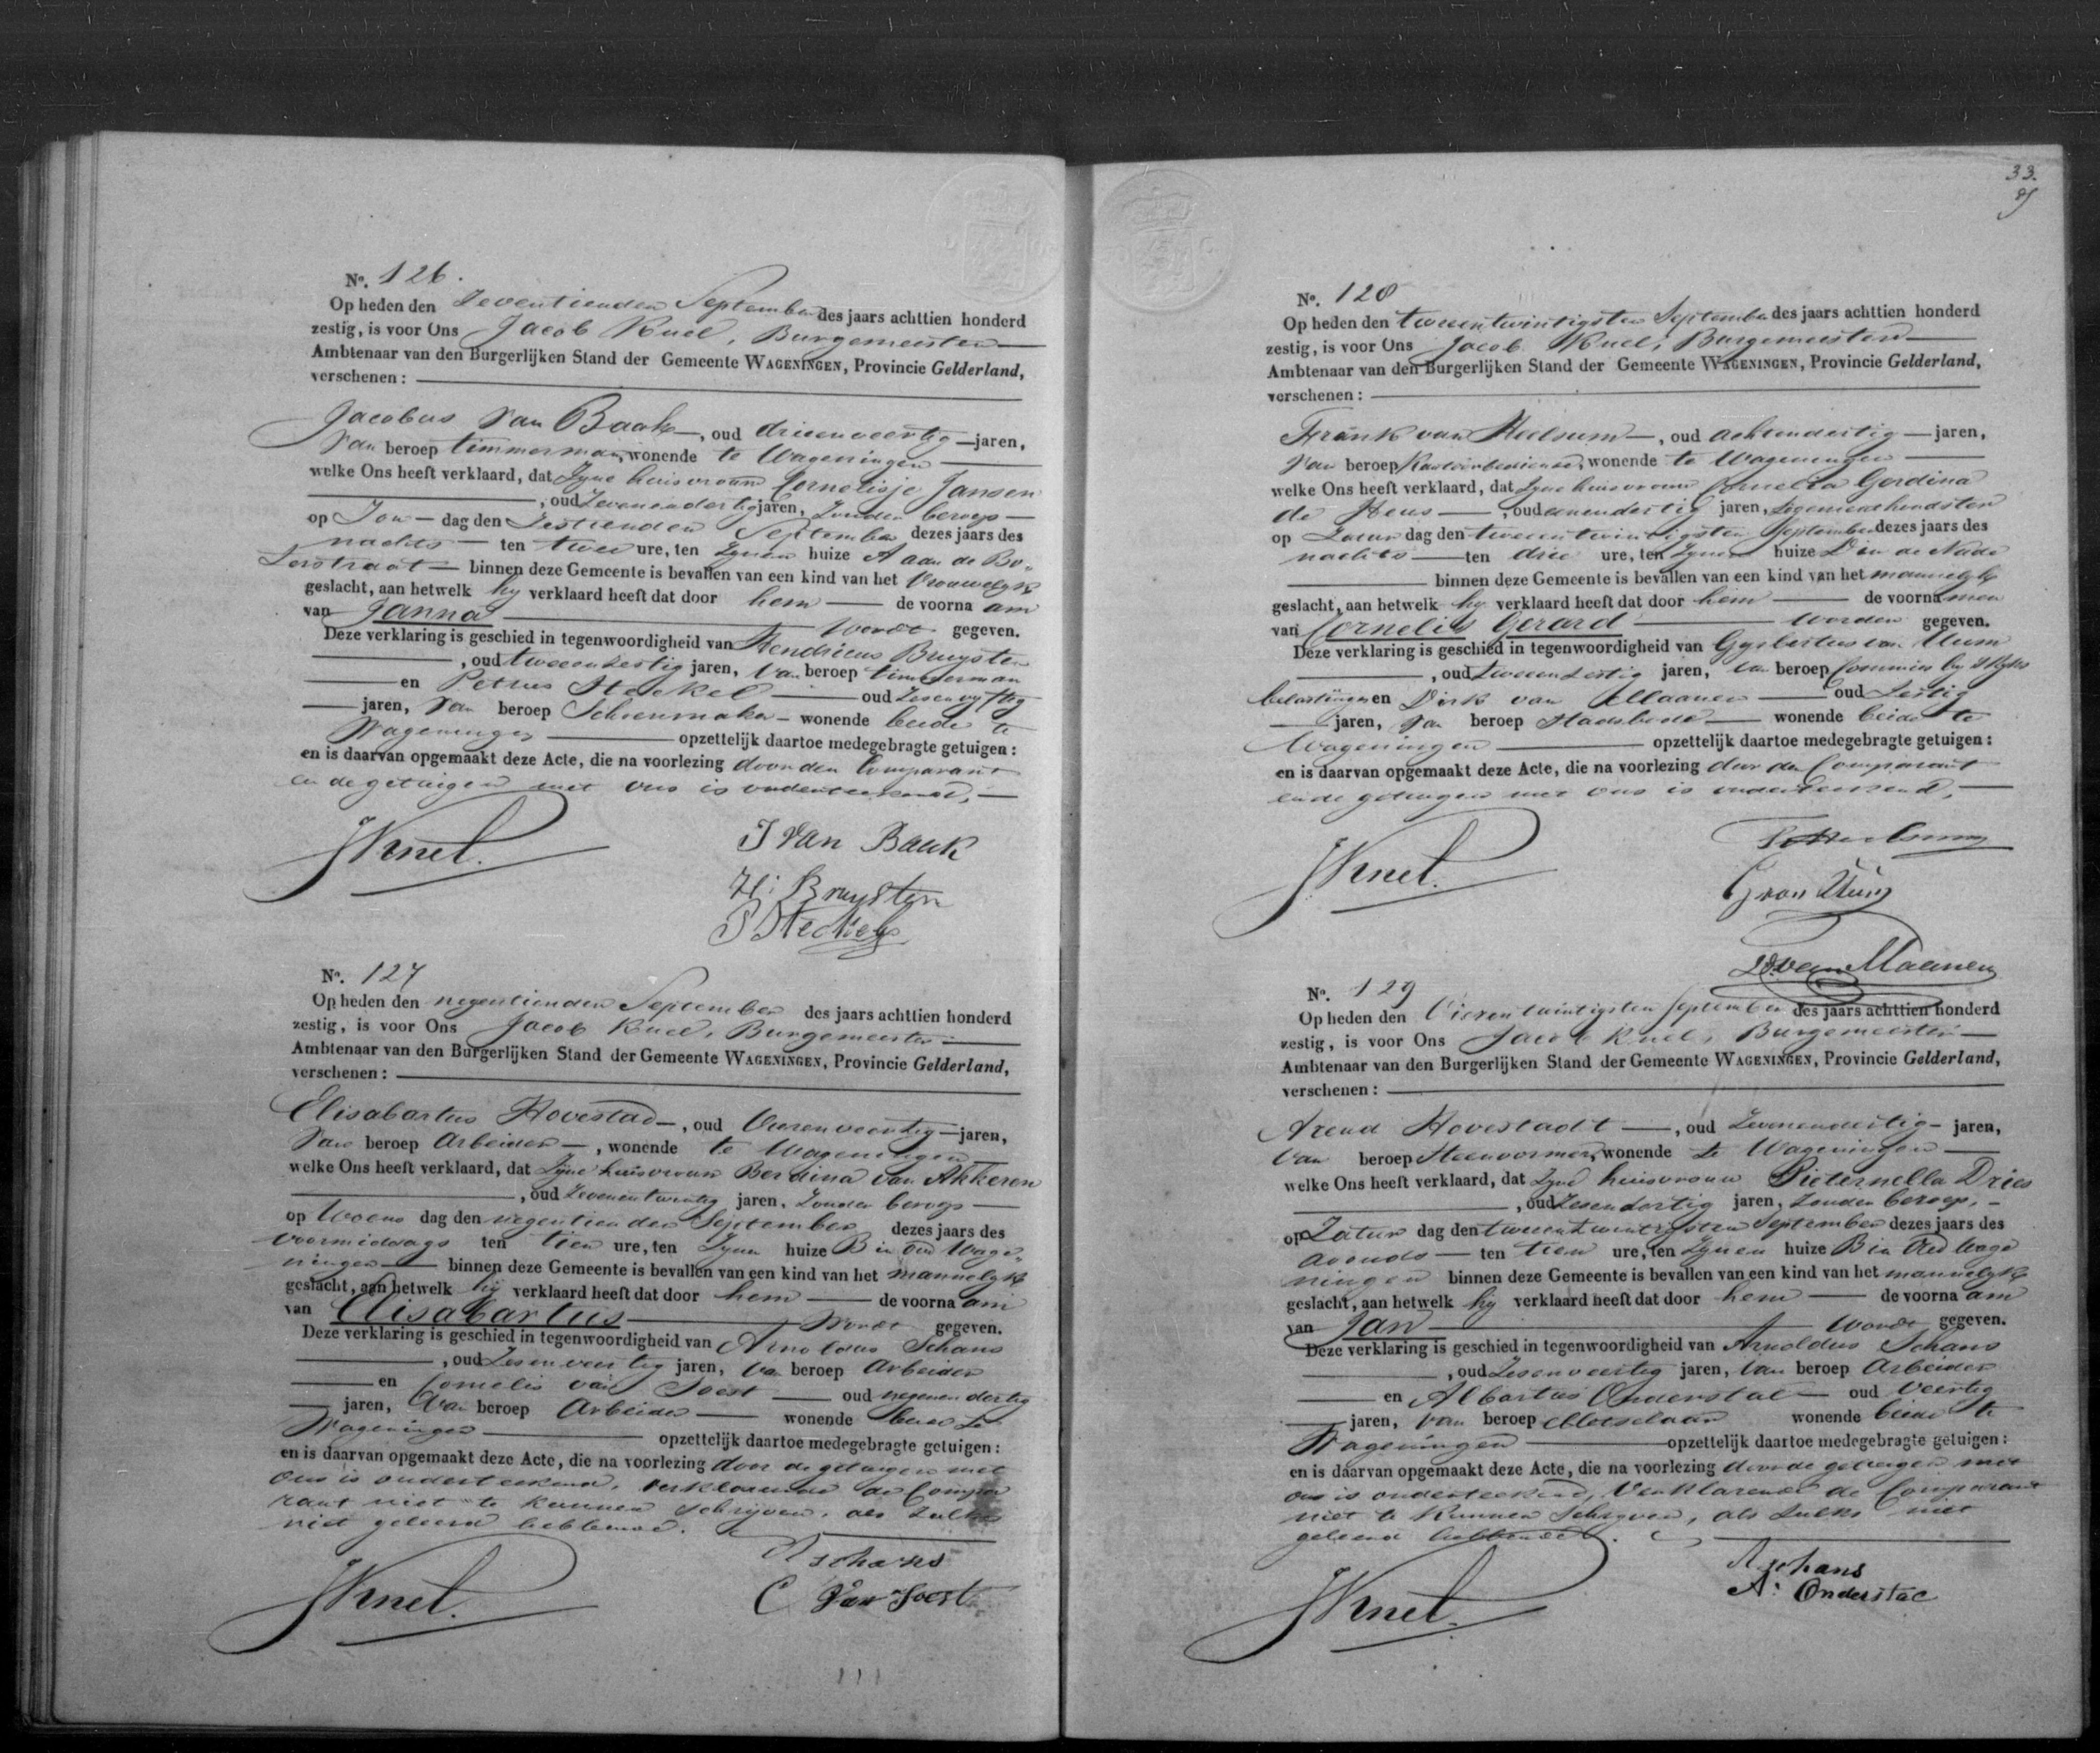 Nº. 126.
Op heden den Zeventienden September des jaars achttien honderd
zestig, is voor Ons Jacob Knel, Burgemeester
Ambtenaar van den Burgerlijken Stand der Gemeente WAGENINGEN, Provincie Gelderland,
verschenen:
Jacobus van Baak, oud drieenveertig jaren,
van beroep timmerman, wonende te Wageningen
welke Ons heeft verklaard, dat Zyne huisvrouw Cornelisje Jansen
, oud Zevenendertig jaren, Zonder beroep
op Zon dag den Zestienden September dezes jaars des
nachts ten twee ure, ten Zynen huize A aan de Bo-
terstraat binnen deze Gemeente is bevallen van een kind van het Vrouwelyk
geslacht, aan hetwelk hy verklaard heeft dat door hem de voorna am
van Janna wordt gegeven.
Deze verklaring is geschied in tegenwoordigheid van Hendricus Bruysten
, oud tweeenzestig jaren, van beroep timmerman
en Petrus Steckel oud Zesenvyftig
jaren, van beroep Schoenmaker wonende beide te
Wageningen opzettelijk daartoe medegebragte getuigen:
en is daarvan opgemaakt deze Acte, die na voorlezing door den Comparant
en de getuigen met ons is onderteekend,
JKnel.
J van Baak
H: Bruysten
P Steckel
Nº. 127
Op heden den negentienden September des jaars achttien honderd
zestig, is voor Ons Jacob Knel, Burgemeester
Ambtenaar van den Burgerlijken Stand der Gemeente WAGENINGEN, Provincie Gelderland,
verschenen:
Elisabartus Hovestad, oud Vierenveertig jaren,
van beroep Arbeider, wonende te Wageningen
welke Ons heeft verklaard, dat Zyne huisvrouw Berdina van Akkeren
, oud Zevenentwintig jaren, Zonder beroep
op Woens dag den negentienden September dezes jaars des
voormiddags ten tien ure, ten Zynen huize B in Oud Wage-
ningen binnen deze Gemeente is bevallen van een kind van het mannelyk
geslacht, aan hetwelk hy verklaard heeft dat door hem de voorna am
van Elisabartus wordt gegeven.
Deze verklaring is geschied in tegenwoordigheid van Arnoldus Schans
, oud Zesenveertig jaren, van beroep Arbeider
en Cornelis van Soest oud negenendertig
jaren, van beroep Arbeider wonende beide te
Wageningen opzettelijk daartoe medegebragte getuigen:
en is daarvan opgemaakt deze Acte, die na voorlezing door de getuigen met
ons is onderteekend, verklarende de Compa
rant niet te kunnen schrijven, als Zulks
niet geleerd hebbende.
JKnel.
A schans
C van Soest
33.
Nº. 128
Op heden den tweeentwintigsten September des jaars achttien honderd
zestig, is voor Ons Jacob Knel, Burgemeester
Ambtenaar van den Burgerlijken Stand der Gemeente WAGENINGEN, Provincie Gelderland,
verschenen:
Frank van Heelsum, oud achtendertig jaren,
van beroep Kantoorbediende, wonende te Wageningen
welke Ons heeft verklaard, dat Zyne huisvrouw Cornelia Gerdina
de Heus, oud eenendertig jaren,
op Zatur dag den tweeentwintigsten September dezes jaars des
nachts ten drie ure, ten Zynen huize D in de Nude
binnen deze Gemeente is bevallen van een kind van het mannelyk
geslacht, aan hetwelk hy verklaard heeft dat door hem de voorna men
van Cornelis Gerard worden gegeven.
Deze verklaring is geschied in tegenwoordigheid van Gysbertus van Uum
, oud tweeenzestig jaren, van beroep Commies by 's Ryks
belastingen en Dirk van Maanen oud Zestig
jaren, van beroep Stadsbode wonende beide te
Wageningen opzettelijk daartoe medegebragte getuigen:
en is daarvan opgemaakt deze Acte, die na voorlezing door den Comparant
en de getuigen met ons is onderteekend,
JKnel.
G van Uum
D. van Maanen
Nº. 129
Op heden den Vierentwintigsten September des jaars achttien honderd
zestig, is voor Ons Jacob Knel, Burgemeester
Ambtenaar van den Burgerlijken Stand der Gemeente WAGENINGEN, Provincie Gelderland,
verschenen:
Arend Hovestadt, oud Zevenendertig jaren,
van beroep Steenvormer, wonende te Wageningen
welke Ons heeft verklaard, dat Zyne huisvrouw Pieternella Dries
, oud Zesendertig jaren, Zonder beroep,
op Zatur dag den tweeentwintigsten September dezes jaars des
avonds ten tien ure, ten Zynen huize B in Oud Wage
ningen binnen deze Gemeente is bevallen van een kind van het mannelyk
geslacht, aan hetwelk hy verklaard heeft dat door hem de voorna am
van Jan wordt gegeven.
Deze verklaring is geschied in tegenwoordigheid van Arnoldus Schans
, oud Zesenveertig jaren, van beroep Arbeider
en Albartus Onderstal oud Veertig
jaren, van beroep Metselaar wonende beide te
Wageningen opzettelijk daartoe medegebragte getuigen:
en is daarvan opgemaakt deze Acte, die na voorlezing door de getuigen met
ons is onderteekend, Verklarende de Comparant
niet te kunnen Schryven, als Zulks niet
geleerd hebbende.
JKnel.
A schans
A: Onderstal